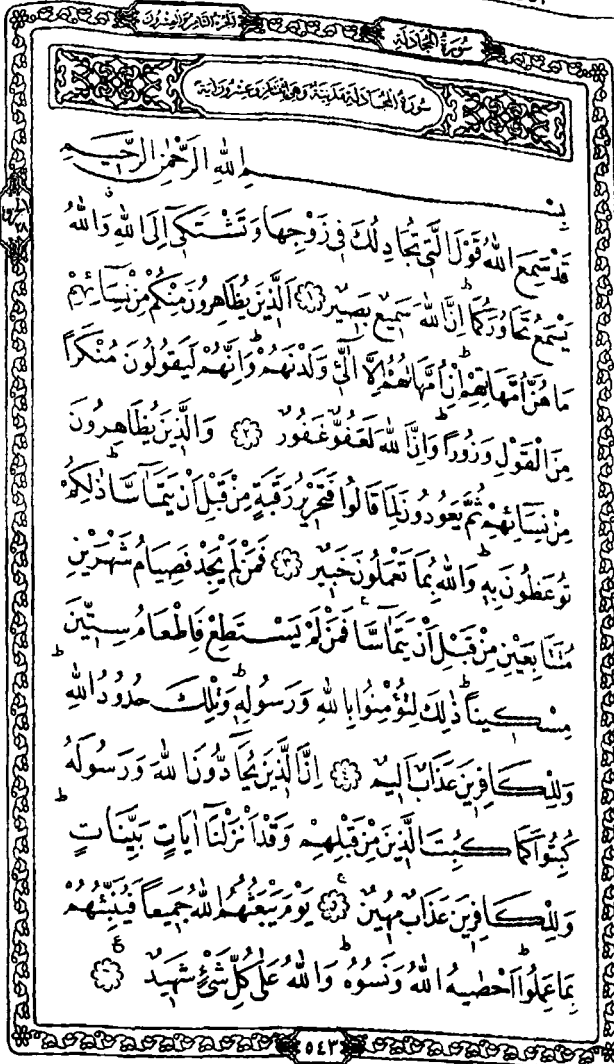 الجزء الثامن والعشرون
سورة المجادلة
سورة المجادلة مدنية وهي اثنتان وعشرون اية
بِسْمِ اللهِ الرَّحْمٰنِ الرَّحِيمِ
قَدْ سَمِعَ اللهُ قَوْلَ الَّتِي تُجَادِلُكَ فِي زَوْجِهَا وَتَشْتَكِي إِلَى اللهِ وَاللهُ
يَسْمَعُ تَحَاوُرَكُمَا اِنَّ اللهَ سَمِيعٌ بَصِيرٌ ﴿١﴾ اَلَّذِينَ يُظَاهِرُونَ مِنْكُمْ مِنْ نِسَائِهِمْ
مَا هُنَّ اُمَّهَاتِهِمْ اِنْ اُمَّهَاتُهُمْ اِلَّا الّٰٓئِ وَلَدْنَهُمْ وَاِنَّهُمْ لَيَقُولُونَ مُنْكَراً
مِنَ الْقَوْلِ وَزُوراً وَاِنَّ اللهَ لَعَفُوٌّ غَفُورٌ ﴿٢﴾ وَالَّذِينَ يُظَاهِرُونَ
مِنْ نِسَائِهِمْ ثُمَّ يَعُودُونَ لِمَا قَالُوا فَتَحْرِيرُ رَقَبَةٍ مِنْ قَبْلِ اَنْ يَتَمَاسَّا ذٰلِكُمْ
تُوعَظُونَ بِهِ وَاللهُ بِمَا تَعْمَلُونَ خَبِيرٌ ﴿٣﴾ فَمَنْ لَمْ يَجِدْ فَصِيَامُ شَهْرَيْنِ
مُتَتَابِعَيْنِ مِنْ قَبْلِ اَنْ يَتَمَاسَّا فَمَنْ لَمْ يَسْتَطِعْ فَاِطْعَامُ سِتِّينَ
مِسْكِيناً ذٰلِكَ لِتُؤْمِنُوا بِاللهِ وَرَسُولِهِ وَتِلْكَ حُدُودُ اللهِ
وَلِلْكَافِرِينَ عَذَابٌ اَلِيمٌ ﴿٤﴾ اِنَّ الَّذِينَ يُحَادُّونَ اللهَ وَرَسُولَهُ
كُبِتُوا كَمَا كُبِتَ الَّذِينَ مِنْ قَبْلِهِمْ وَقَدْ اَنْزَلْنَا اٰيَاتٍ بَيِّنَاتٍ
وَلِلْكَافِرِينَ عَذَابٌ مُهِينٌ ﴿٥﴾ يَوْمَ يَبْعَثُهُمُ اللهُ جَمِيعاً فَيُنَبِّئُهُمْ
بِمَا عَمِلُوا اَحْصٰيهُ اللهُ وَنَسُوهُ وَاللهُ عَلٰى كُلِّ شَيْءٍ شَهِيدٌ ﴿٦﴾
٥٤٣